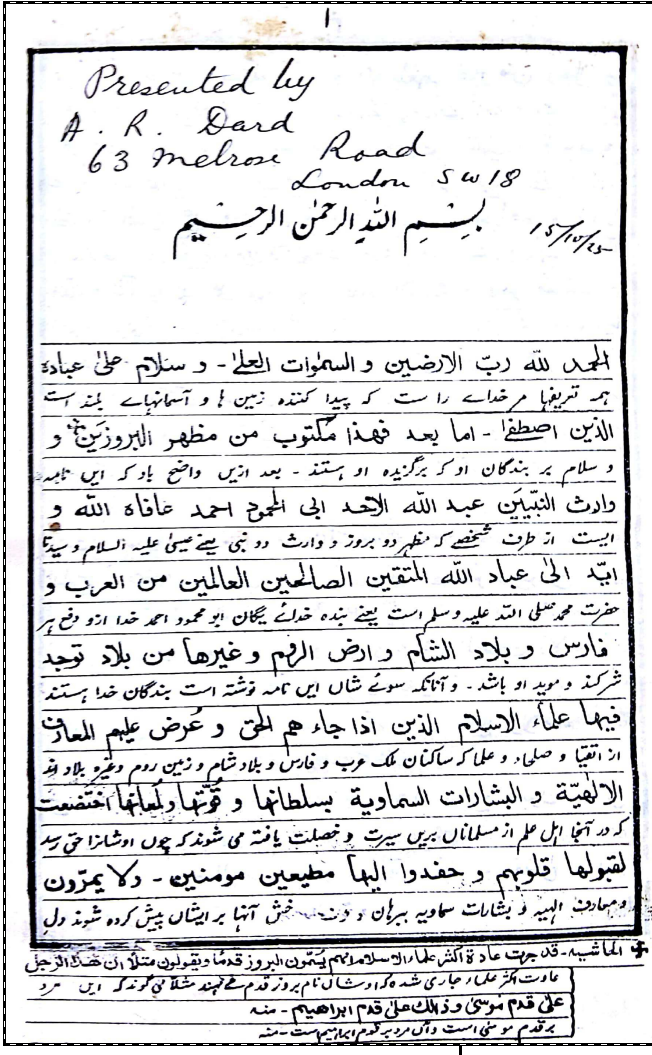 ١
Presented by
A. R. Dard
63 Melrose Road
London SW18
بِسْمِ اللّٰهِ الرحمٰن الرحیم
15/10/25
الحمد لله ربّ الارضين و السمٰوات العلىٰ - و سلام علىٰ عباده
ہمہ تعریفہا مر خدائے را ست کہ پیدا کنندہ زمین ہا و آسمانہائے بلند است
الذين اصطفىٰ - اما بعد فهذا مكتوب من مظهر البروزَين و
و سلام بر بندگان او کہ برگزیدہ او ہستند - بعد ازیں واضح باد کہ ایں نامہ
وارث النبيّين عبد الله الاحد ابى المحمود احمد عافاه الله و
ایست از طرف شخصے کہ مظہر دو بروز و وارث دو نبی یعنے عیسیٰ علیہ السلام و سیدنا
ايّد الىٰ عباد الله المتقين الصالحين العالمين من العرب و
حضرت محمد صلی اللہ علیہ وسلم است یعنے بندہ خدائے یگان ابو محمود احمد خدا ازو دفع ہر
فارس و بلاد الشام و ارض الروم و غيرها من بلاد توجد
شر کند و موید او باشد - و آنانکہ سوئے شاں ایں نامہ نوشتہ است بندگان خدا ہستند
فيها علماء الاسلام الذين اذا جاءهم الحق و عُرض عليهم المعارف
از اتقیا و صلحاء و علما کہ ساکنان ملک عرب و فارس و بلاد شام و زمین روم و غیرہ بلاد اند
الالٰهيّة و البشارات السماوية بسلطانها و قوّتها ولمعانها اختضعت
کہ در آنجا اہل علم از مسلماناں بریں سیرت و خصلت یافتہ می شوند کہ چوں اوشانرا حق رسد
لقبولها قلوبهم و حفدوا اليها مطيعين مومنين - ولا يمرّون
و معارف الہیہ و بشارات سماویہ ببرہان و آنہا بر ایشاں پیش کردہ شوند دل
الحاشيه - قد جرت عادة اكثر علماء الاسلام انهم يُسَمّون البروز قدمًا ويقولون مثلًا ان هذا الرجل
عادت اکثر علماء جاری شدہ کہ اوشاں نام بروز قدم مے نہند مثلاً می گوند کہ ایں مرد
علىٰ قدم موسىٰ وذالك علىٰ قدم ابراهيم - منه
بر قدم موسیٰ است و آں مرد بر قدم ابراہیم است - منہ